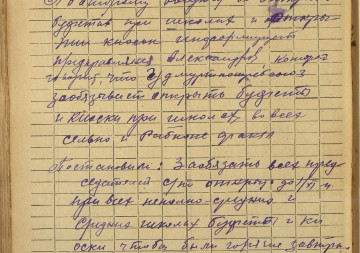 буфетов при школах и откры-
тии киосок информирует
Александров, который
говорит, что Удмуртпотребсоюз
заобязывает открыть буфеты
и киоски при школах во всех
сельпо и
Постановили: Заобязать всех пред
седателей с/по открыть до
при всех неполно-средних и
средних школах буфеты и ки
оски чтобы были горячие завтра-